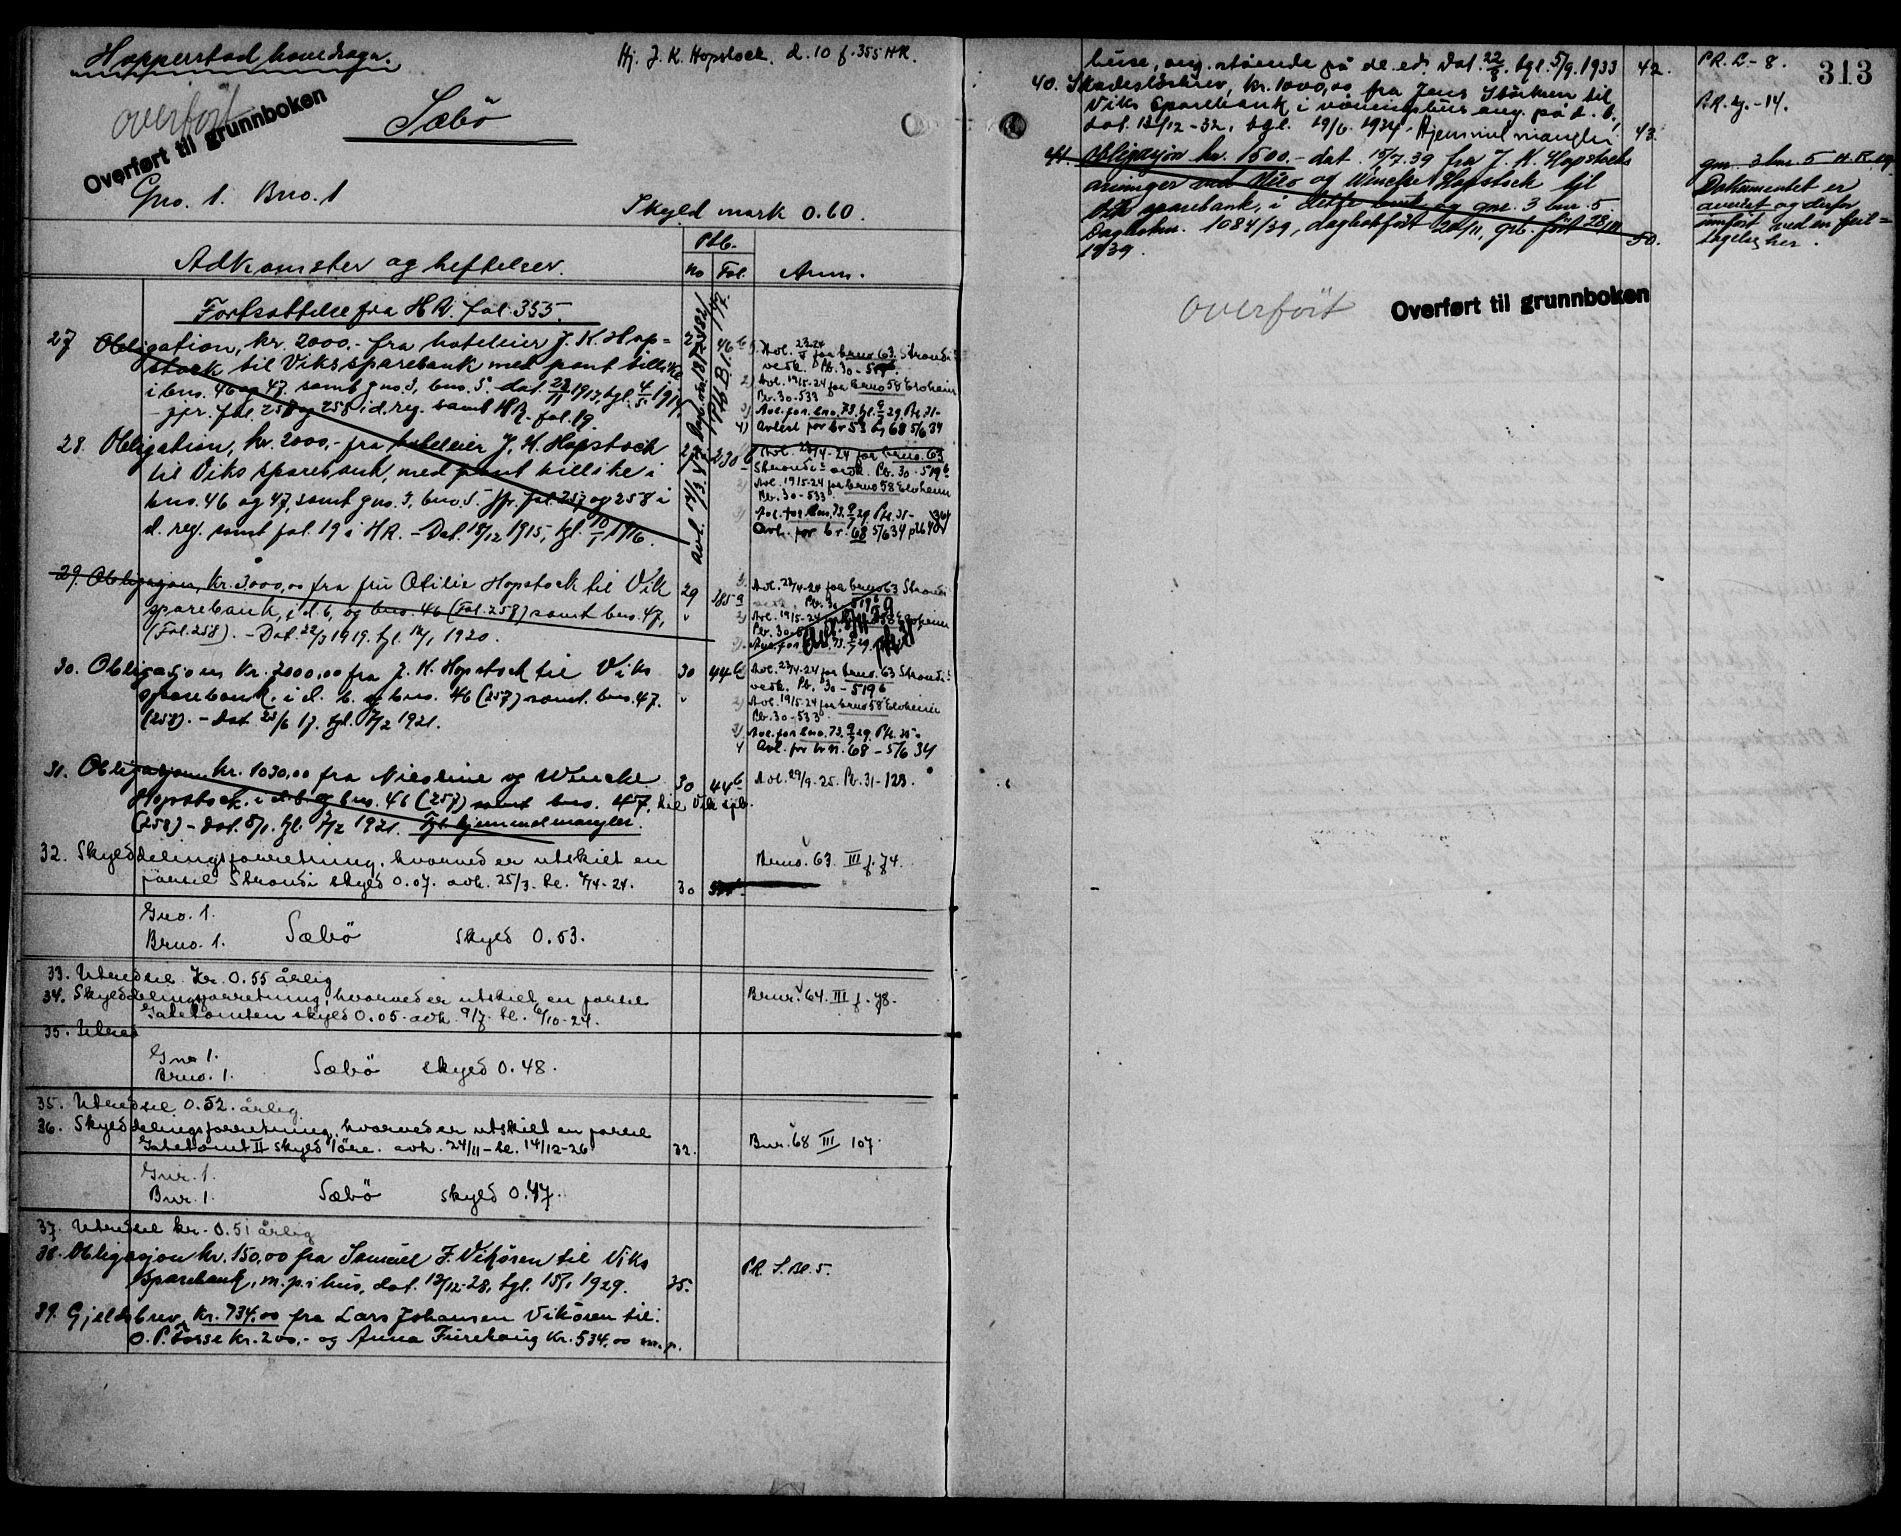 Hopperstad hovedsogn.
Hj. J. K. Hopstock. d. 10 f. 355 HR.
overført
Overført til grunnboken
Sæbö
Gno. 1. Bno. 1
Skyld mark 0.60.
Adkomster og heftelser.
Ptb.
No Fol.
Anm.
Fortsættelse fra HR. fol. 355.
27 Obligation, kr. 2000.- fra hoteleier J. K. Hop=
stock til Viks sparebank med pant tillike
i bno. 46 og 47 samt gno. 3, bno. 5. dat. 1917, tgl. 4/5 1917,
- jfr. fol. 257 og 258 i d. reg. samt HR. fol. 19.
46 b
1. Avl. 23/4-24 for bruno 63 Strandi=
vedk. Pb. 30-519
2) Avl. 1915-24 for bruno 58 Elvheim
Pb. 30-533
3) Avl. for bno. 73. tgl. 9/7 29 Pb. 31-
4) Avlest for br 53 og 68 5/6 34
28. Obligation, kr. 2000,- fra hoteleier J. K. Hopstock
til Viks sparebank, med pant tillike i
bno. 46 og 47, samt gno. 3, bno. 5 - jfr. fol 257 og 258 i
d. reg. samt fol. 19 i HR. - Dat. 18/12 1915, tgl. 10/1 1916.
230 b
Avl. 23/4-24 for bruno. 63
Strandi= vedk. Pb. 30-519 b
Avl. 1915-24 for bruno 58 Elvheim
Pb. 30-533
Avl. for bno. 73. 9/7 29 Pb. 31-
Avl. for br. 68 5/6 34
29. Obligasjon, kr. 3000,00 fra fru Otilie Hopstock til Vik
sparebank, i d. b. og bno. 46 (Fol. 258) samt bno. 47,
(Fol. 258). - Dat. 22/3 1919. tgl. 12/1 1920.
29 385 a
Avl. 23/4-24 for bruno 63 Strandi
2) Avl. 1915-24 for bruno 58 Elvheim
30. Obligasjon kr. 2000,00 fra J. K. Hopstock til Viks
sparebank. i d. b. og bno. 46 (257) samt. bno. 47.
(258). - Dat 23/6 17. tgl. 7/2 1921.
30 44 b
Avl. 23/4-24 for bruno. 63 Strandi=
vedk. Pb. 30-519 b
2) Avl. 1915-24 for bruno 58 Elvheim
Pb. 30-533
3) Avl. for bno. 73. 9/7 29. Pb. 31-
4 Avl. for br n. 68 - 5/6 34
31. Obligasjon kr. 1030,00 fra Nicoline og Wencke
Hopstock. i d. b. og bno. 46 (257) samt bno. 47, til Vik spb.
(258) - dat. 5/1. tgl. 7/2 1921. Tgl. hjemmel mangler.
30 44 b
Avl. 29/9-25. Pb. 31-123.
32. Skylddelingsforretning, hvorved er utskilt en
parsel Strandi skyld 0.07. avh. 25/3. tl. 4/4-24.
30
Bruno. 63 III f. 74.
Gno. 1.
Bruno. 1. Sæbö skyld 0.53.
33. Utredsel kr. 0.55 årlig
34. Skylddelingsforretning, hvorved er utskilt en parsel
Gatetomten skyld 0.05. avh. 9/7. tl. 6/10-24.
Bnr. 64. III f. 78.
35. Utred
Gno 1.
Bruno. 1. Sæbö skyld 0.48.
35. Utredsel 0.52. årlig
36. Skylddelingsforretning, hvorved er utskilt en parsel
Gatetomt II skyld 1 öre. avh. 24/11 - tl. 14/12-26
32.
Bnr. 68 III 107.
Gnr. 1.
Bnr. 1 Sæbö skyld 0.47.
37. Utredsel kr. 0.51 årlig
38. Obligasjon kr. 150,00 fra Samuel J. Vikören til Viks
Sparebank, m. p. i hus, dat. 12/12-28, tgl. 15/1 1929.
35.
PR. S. Bl. 5.
39. Gjeldsbrev, kr. 734,00 fra Lars Johansen Vikören til:
O. P. Torse kr. 200,- og Anna Furehaug kr. 534,00 m. p.
huse, ang. stående på de. ed. Dat. 22/8. tgl. 5/9. 1933
42.
PR. L - 8.
313
40. Skadeslösbrev, kr. 1000,00 fra Jens til
Viks Sparebank i våningshus ang. på d. b.,
dat. 12/12-32, tgl. 19/6. 1934. Hjemmel mangler
43.
PR. -14.
41. Obligasjon kr. 1500.- dat. 15/7.39 fra J. K. Hopstocks
arvinger ved og Wencke Hopstock til
Vik sparebank, i dette bnr. og gnr. 3 bnr. 5.
Dagboknr. 1084/39, dagbokført 20/11, grb. ført 28/11
1939.
50.
gnr. 3 bnr. 5 H.R. 19.
Dokumentet er
avvist og derfor
innført ved en feil=
tagelse her.
overført
Overført til grunnboken